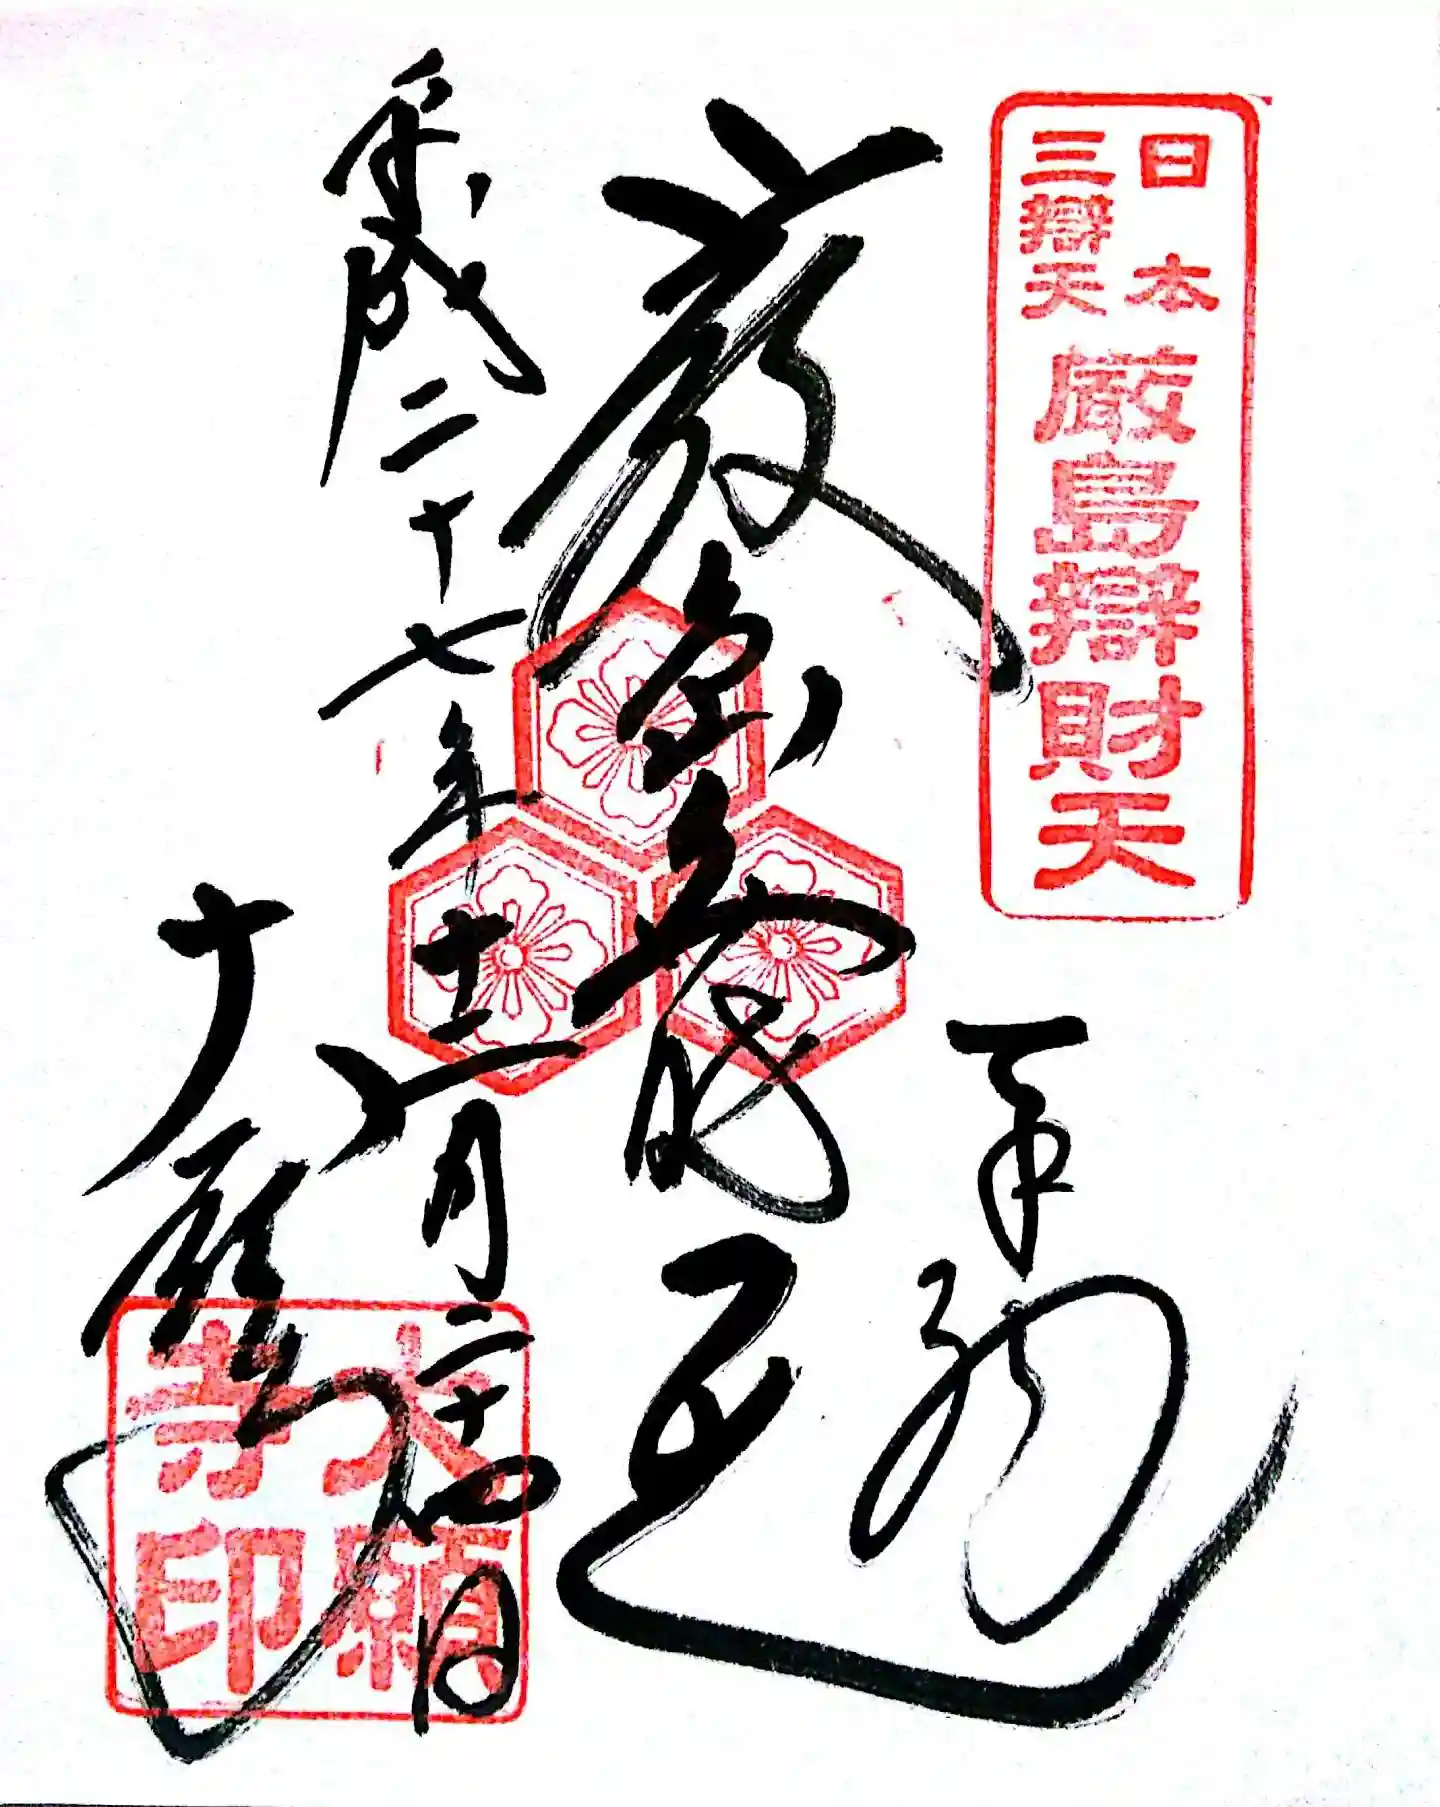 日本
三辯天
厳島辯財天
奉拝
平成二十七年十二月二十四日
大願寺
大願
寺印